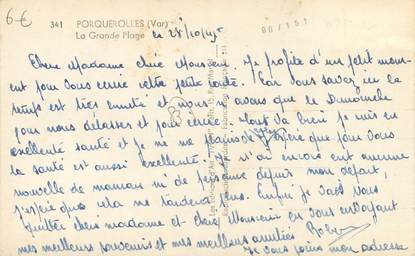 6€
341 PORQUEROLLES (Var)
La Grande Plage
le 28/10/
Chère Madame chère Monsieur. Je profite d'un petit mom-
ent pour vous écrire cette petite carte. Car vous savez ici le
temps est très et nous avons que le Dimanche
pour nous délasser et pour écrire. va bien je suis en
exellente santé et je ne me plains de rien j'espère que pour vous
la santé est aussi exellente. Je n'ai encore eut aucune
nouvelle de maman ni de personne depuis mon départ,
j'espère que cela ne tardera pas. Enfin je vais vous
quitter chère madame et chère Monsieur en vous envoyant
mes meilleurs souvenirs et mes meilleurs amitiés
Je vous joins mon adresse